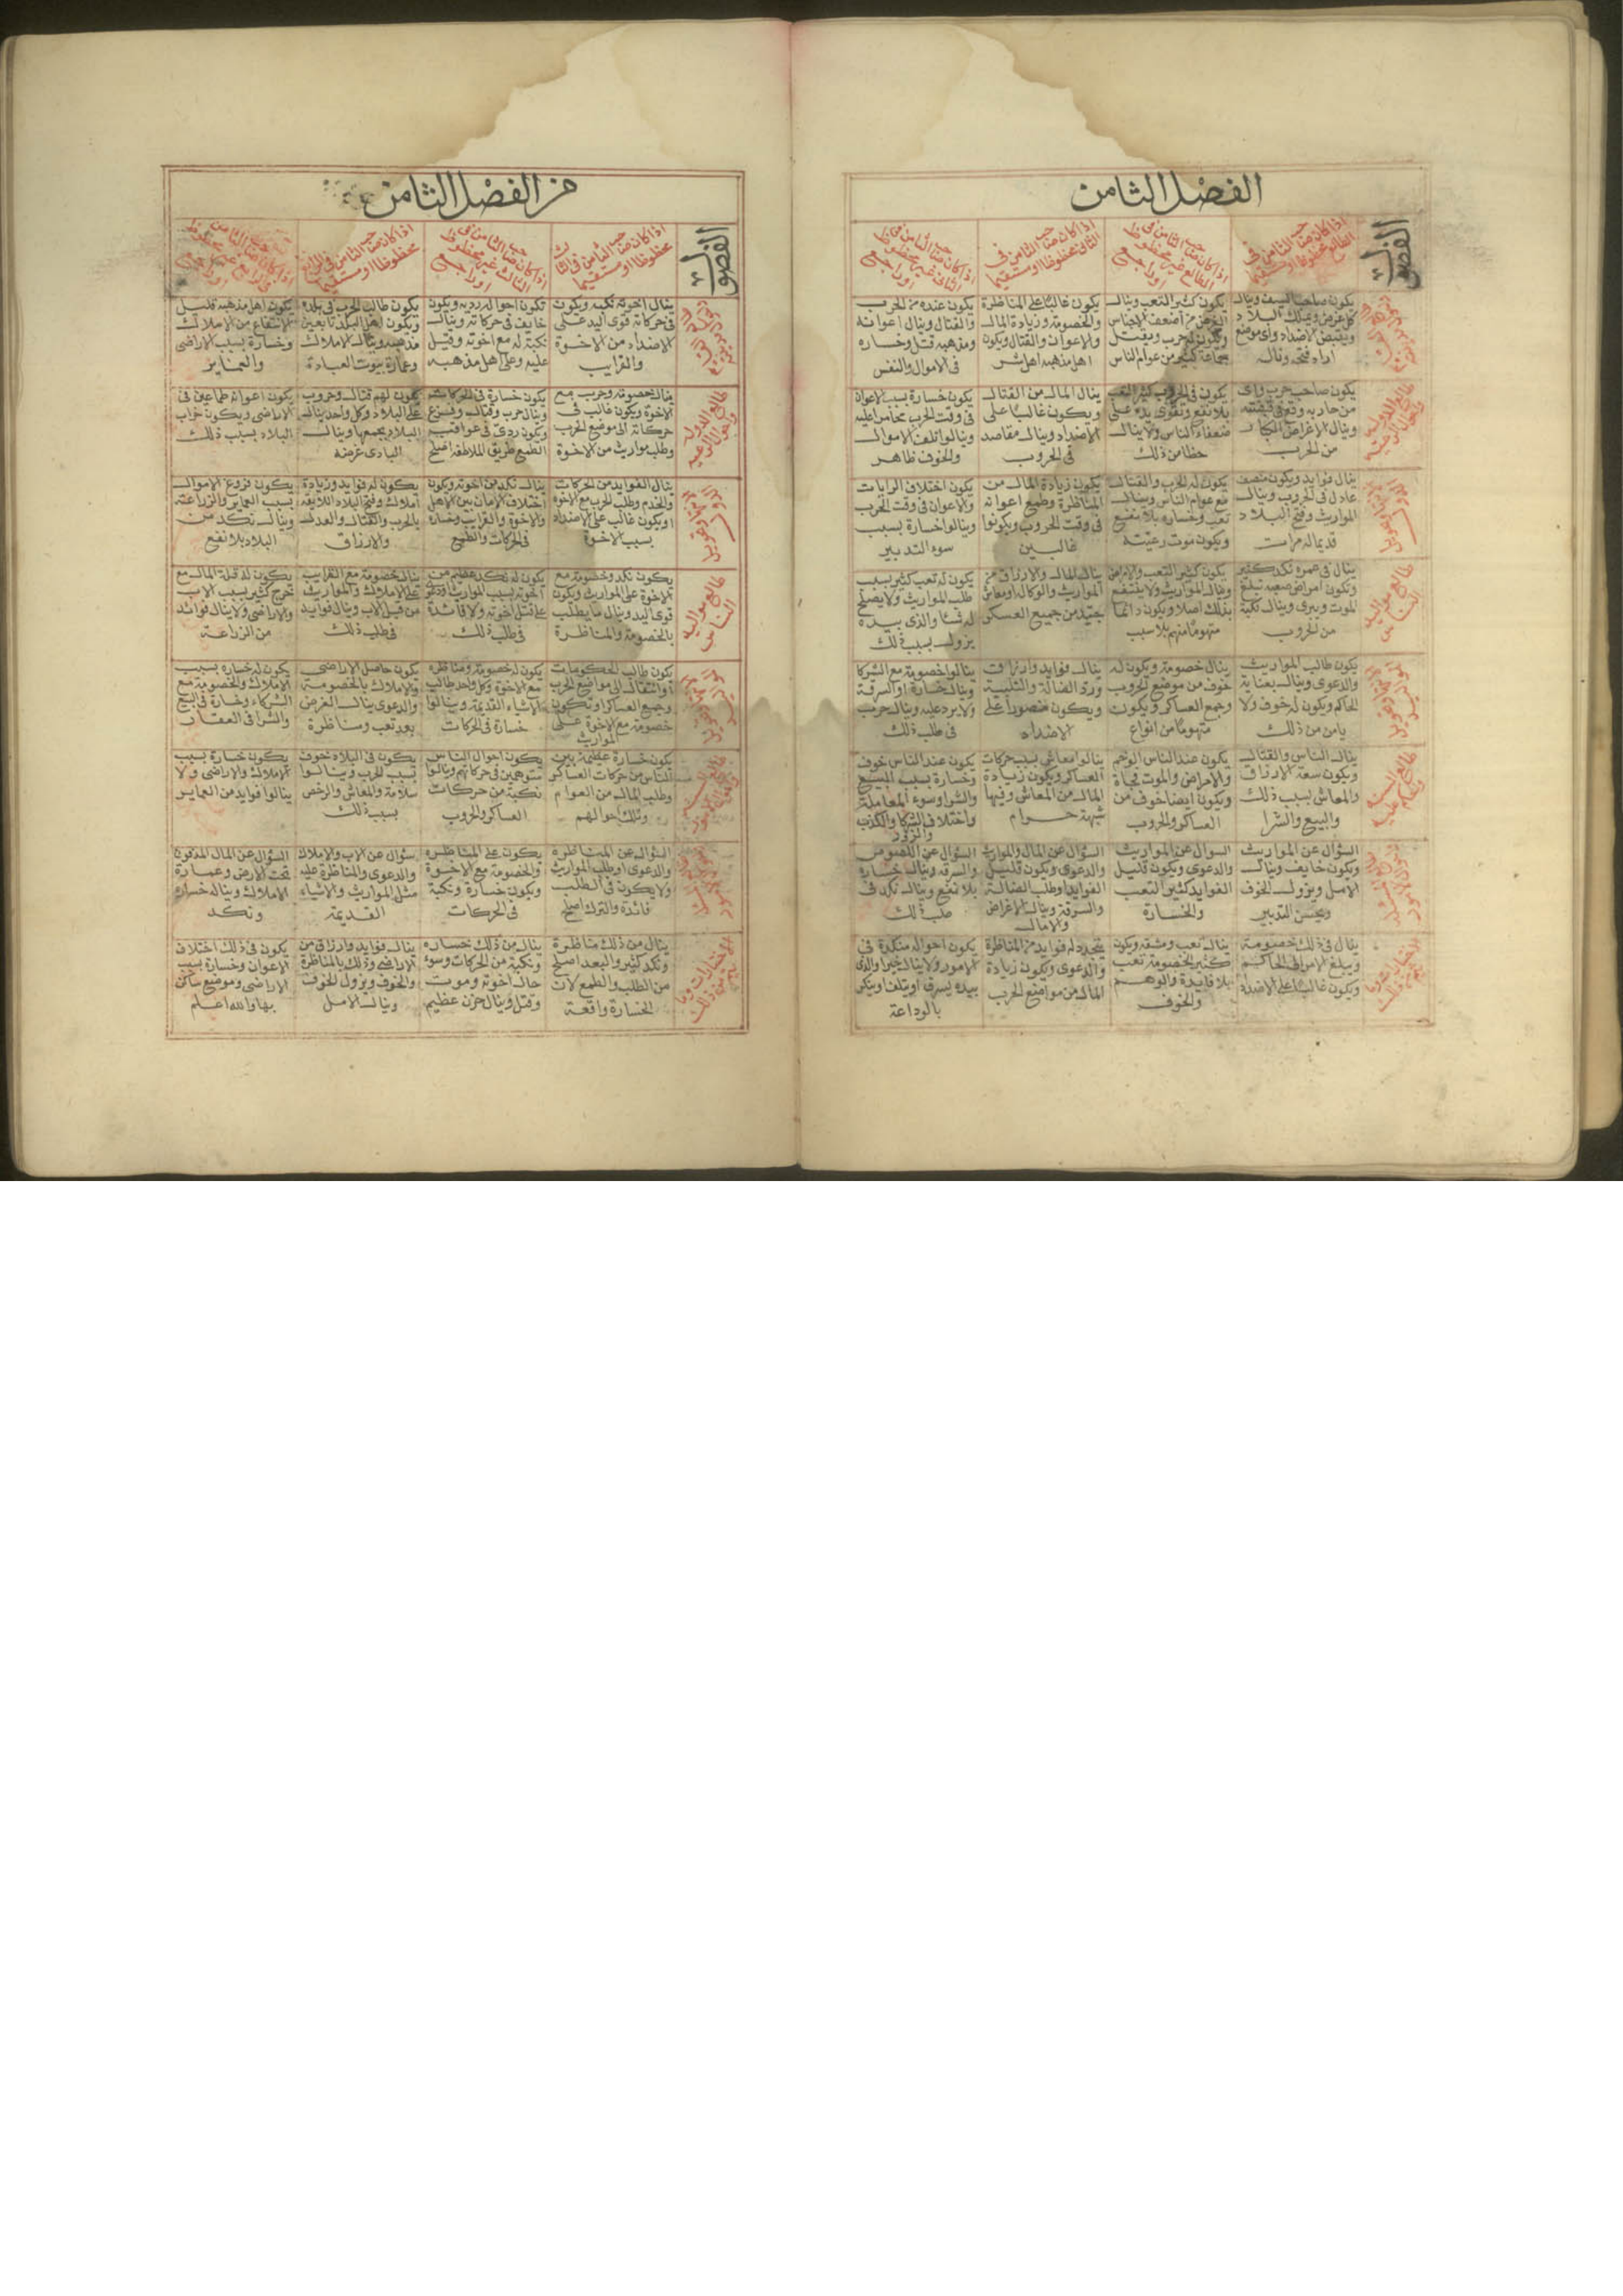 الفصل الثامن
الفصول
اذا كان صاحب الثامن فى
الطالع محظوظا او مستقيما
اذا كان صاحب الثامن فى
الطالع غير محظوظ
او راجع
اذا كان صاحب الثامن فى
الثانى محظوظا او مستقيما
اذا كان صاحب الثامن فى
الثانى غير محظوظ
او راجع
يكون صاحب السيف وينال
كل غرض ويملك البلاد
ويقبض الاضداد واى موضع
اراد فتحه وناله
يكون كثير التعب وينال
الغرض من اضعف الاجناس
ويكون له حرب ويقتل
جماعة كثير من عوام الناس
يكون غالبًا على المناظرة
والخصومة وزيادة المال
والاعوان والقتال ويكون
اهل مذهبه اهل شر
يكون عنده من الحرب
والقتال وينال اعوانه
ومذهبه قتل وخساره
فى الاموال والنفس
يكون صاحب حرب واى
من حاربه وقع فى قبضته
وينال الاغراض
من الحرب
يكون فى الحروب كثير التعب
بلا نفع ويقوى يده على
ضعفاء الناس ولا ينال
حظا من ذلك
ينال المال من القتال
ويكون غالبًا على
الاضداد وينال مقاصد
فى الحروب
يكون خسارة بسبب الاعوان
فى وقت الحرب
وينالوا تلف الاموال
والخوف ظاهر
ينال فوايد ويكون منصف
عادل فى الحروب وينال
المواريث وفتح البلاد
قديما له مرات
يكون له الحرب والقتال
مع عوام الناس وينال
تعب وخساره بلا نفع
ويكون موت رعيته
يكون زيادة المال من
المناظرة وطمع اعوانه
فى وقت الحروب ويكونوا
غالبين
يكون اختلاف الرايات
والاعوان فى وقت الحرب
وينالوا خسارة بسبب
سوء التدبير
طالع مواليد
الناس
ينال فى عمره نكد كثير
وتكون امراض صعبه تبلغ
الموت ويبرى وينال نكبة
من الحروب
يكون كثير التعب والامراض
وينال المواريث ولا ينتفع
بذلك اصلا ويكون دائما
متهومًا منهم بلا سبب
ينال المال والارزاق من
المواريث والوكاله ومعاش
جيّد من جميع العسكر
يكون له تعب كثير بسبب
طلب المواريث ولا يصلح
له شئا والذى بيده
يزول بسبب ذلك
يكون طالب المواريث
والدعوى وينال بعناية
الحاكم ويكون له خوف ولا
يامن من ذلك
ينال خصومة ويكون له
خوف من موضع الحروب
وجمع العساكر ويكون
متهومًا من انواع
ينال فوايد وارزاق
ورد الضالة والثلبية
ويكون منصورا على
الاضداد
ينالوا خصومة مع الشركا
وينال خسارة او السرقة
ولا يرد عليه وينال حرب
فى طلب ذلك
ينال الناس والقتال
ويكون سعة الارزاق
والمعاش بسبب ذلك
والبيع والشرا
يكون عند الناس الوخم
والامراض والموت فجاة
ويكون ايضا خوف من
العساكر والحروب
ينالوا معاش بسبب حركات
العساكر ويكون زيادة
المال من المعاش وفيها
شبهة حرام
يكون عند الناس خوف
وخسارة بسبب البيع
والشرا وسوء المعاملة
واختلاف الشركا والكذب
والزور
السؤال عن المواريث
ويكون خايف وينال
الامل ويزول الخوف
ويحسن التدبير
السوال عن المواريث
والدعوى ويكون قليل
الفوايد كثير التعب
والخسارة
السؤال عن المال والمواريث
والدعوى ويكون قليل
الفوايد وطلب الضالة
والسرقة وينال الاغراض
والامال
السؤال عن اللصوص
والسرقه وينال خساره
بلا نفع وينال نكد فى
طلب ذلك
ينال فى ذلك خصومة
ويبلغ الامر الى الحاكم
ويكون غالبًا على الاضداد
ينال تعب ومشقه ويكون
كثير الخصومة تعب
بلا فايدة والوهم
والخوف
يتجدد له فوايد من المناظرة
والدعوى ويكون زيادة
المال من مواضع الحرب
يكون احواله منكدة فى
الامور ولا ينال خيرا والذى
بيده يسرق او يتلف او ينكر
بالوداعة
من الفصل الثامن
الفصول
اذا كان صاحب الثامن فى الثالث
محظوظا او مستقيما
اذا كان صاحب الثامن فى
الثالث غير محظوظ
او راجع
اذا كان صاحب الثامن فى الرابع
محظوظا او مستقيما
اذا كان صاحب الثامن
ينال اخوته نكبه ويكون
فى حركاته قوى اليد على
الاضداد من الاخوة
والقرايب
تكون احواله رديه ويكون
خايف فى حركاته وينال
نكبة له مع اخوته وقيل
عليه وعلى اهل مذهبه
يكون طالب الحرب فى بلده
ويكون اهل البلد تابعين
مذهبه وينال الاملاك
وعمارة بيوت العبادة
يكون اهل مذهبه قليل
الانتفاع من الاملاك
وخسارة بسبب الاراضى
والعماير
ينال خصومة وحرب مع
الاخوة ويكون غالب فى
حركاته الى موضع الحرب
وطلب مواريث من الاخوة
يكون خسارة فى الحركات
وينال حرب وقتال وفزع
ويكون ردئ فى عواقب
الطمع طريق الملاطفه اصلح
يكون لهم قتال وحروب
على البلاد وكل واحد يناله
البلاد يجمعها وينال
البادى غرضه
يكون اعوانه طماعين فى
الاراضى ويكون خراب
البلاد بسبب ذلك
ينال الفوايد من الحركات
والخدم وطلب الحرب مع الاخوه
او يكون غالب على الاضداد
بسبب الاخوة
ينال نكد من اخوته ويكون
اختلاف الامان بين الاهل
والاخوة والقرايب وخساره
فى الحركات والطمع
يكون له فوايد وزيادة
املاك وفتح البلاد اللايقه
بالحرب والقتال والعدل
والارزاق
يكون فروغ الاموال
بسبب العماير والزراعة
وينال نكد من
البلاد بلا نفع
طالع مواليد
الناس
يكون نكد وخصومة مع
الاخوة على المواريث ويكون
قوى اليد وينال ما يطلب
بالخصومة والمناظرة
يكون له نكد عظيم من
اخوته بسبب المواريث
على قتل اخوته ولا فائدة
فى طلب ذلك
ينال خصومة مع القرايب
على الاملاك والمواريث
من قبل الاب وينال فوايد
فى طلب ذلك
يكون له قلة المال مع
خرج كثير بسبب الاب
والاراضى ولا ينال فوائد
من الزراعة
يكون طالب الحكومات
او انتقال الى مواضع الحرب
وجمع العساكر او تكون
خصومة مع الاخوة على
المواريث
يكون له خصومة ومناظره
مع الاخوة وكل واحد طالب
الاشياء القديمة وينالوا
خسارة فى الحركات
يكون حاصل الاراضى
والاملاك بالخصومة
والدعوى ينال الغرض
بعد تعب ومناظرة
يكون له خساره بسبب
الاملاك والخصومة مع
الشركاء وخسارة فى البيع
والشرا فى العقار
يكون خسارة عظيمة بين
الناس من حركات العساكر
وطلب المال من العوام
وتلك احوالهم
يكون احوال الناس
متوهمين فى حركاتهم وينالوا
نكبة من حركات
العساكر والحروب
يكون فى البلاد خوف
بسبب الحرب وينالوا
سلامة والمعاش والرخص
بسبب ذلك
يكون خسارة بسبب
الاملاك والاراضى ولا
ينالوا فوايد من العماير
السؤال عن المناظره
والدعوى او طلب المواريث
ولا يكون فى الطلب
فائدة والترك اصلح
يكون على المناظره
والخصومة مع الاخوة
ويكون خسارة ونكبة
فى الحركات
سؤال عن الاب والاملاك
والدعوى والمناظرة عليه
مثل المواريث والاشياء
القديمة
السؤال عن المال المدفون
تحت الارض وعمارة
الاملاك ويناله خساره
ونكد
ينال من ذلك مناظرة
ونكد كثير والبعد اصلح
من الطلب والطمع لان
الخسارة واقعة
ينال من ذلك خساره
ونكبة من الحركات وسوء
حال اخوته وموت
وقتل وينال حزن عظيم
ينال فوايد وارزاق من
الاراضى وذلك بالمناظرة
والخوف ويزول الخوف
وينال الامل
يكون فى ذلك اختلاف
الاعوان وخسارة بسبب
الاراضى وموضع ساكن
بها والله اعلم